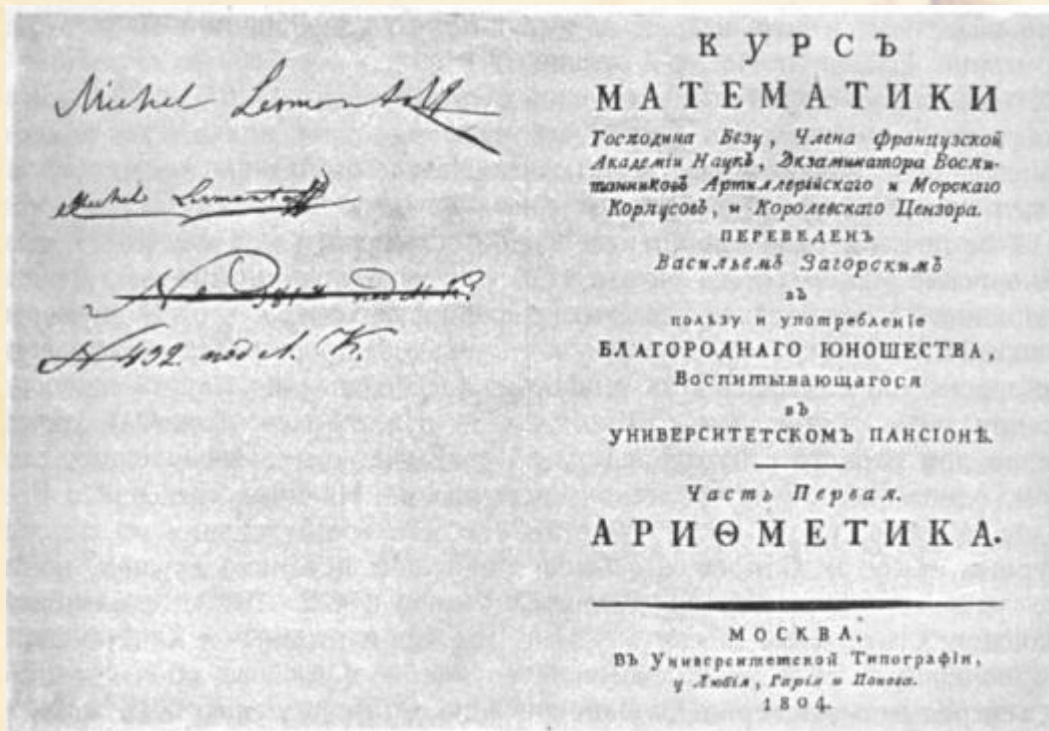 Michel Lermontoff
Michel Lermontoff
под
N 432. под Л. К.
КУРСЪ
МАТЕМАТИКИ
Господина Безу, Члена французской
Академіи Наукъ, Экзаминатора Воспи-
танниковъ Артиллерійскаго и Морскаго
Корпусовъ, и Королевскаго Цензора.
ПЕРЕВЕДЕНЪ
Васильемъ Загорскимъ
въ
пользу и употребленіе
БЛАГОРОДНАГО ЮНОШЕСТВА,
Воспитывающагося
въ
УНИВЕРСИТЕТСКОМЪ ПАНСІОНѢ.
Часть Первая.
АРИѲМЕТИКА.
МОСКВА,
Въ Университетской Типографіи,
у Любія, Гарія и Попова.
1804.